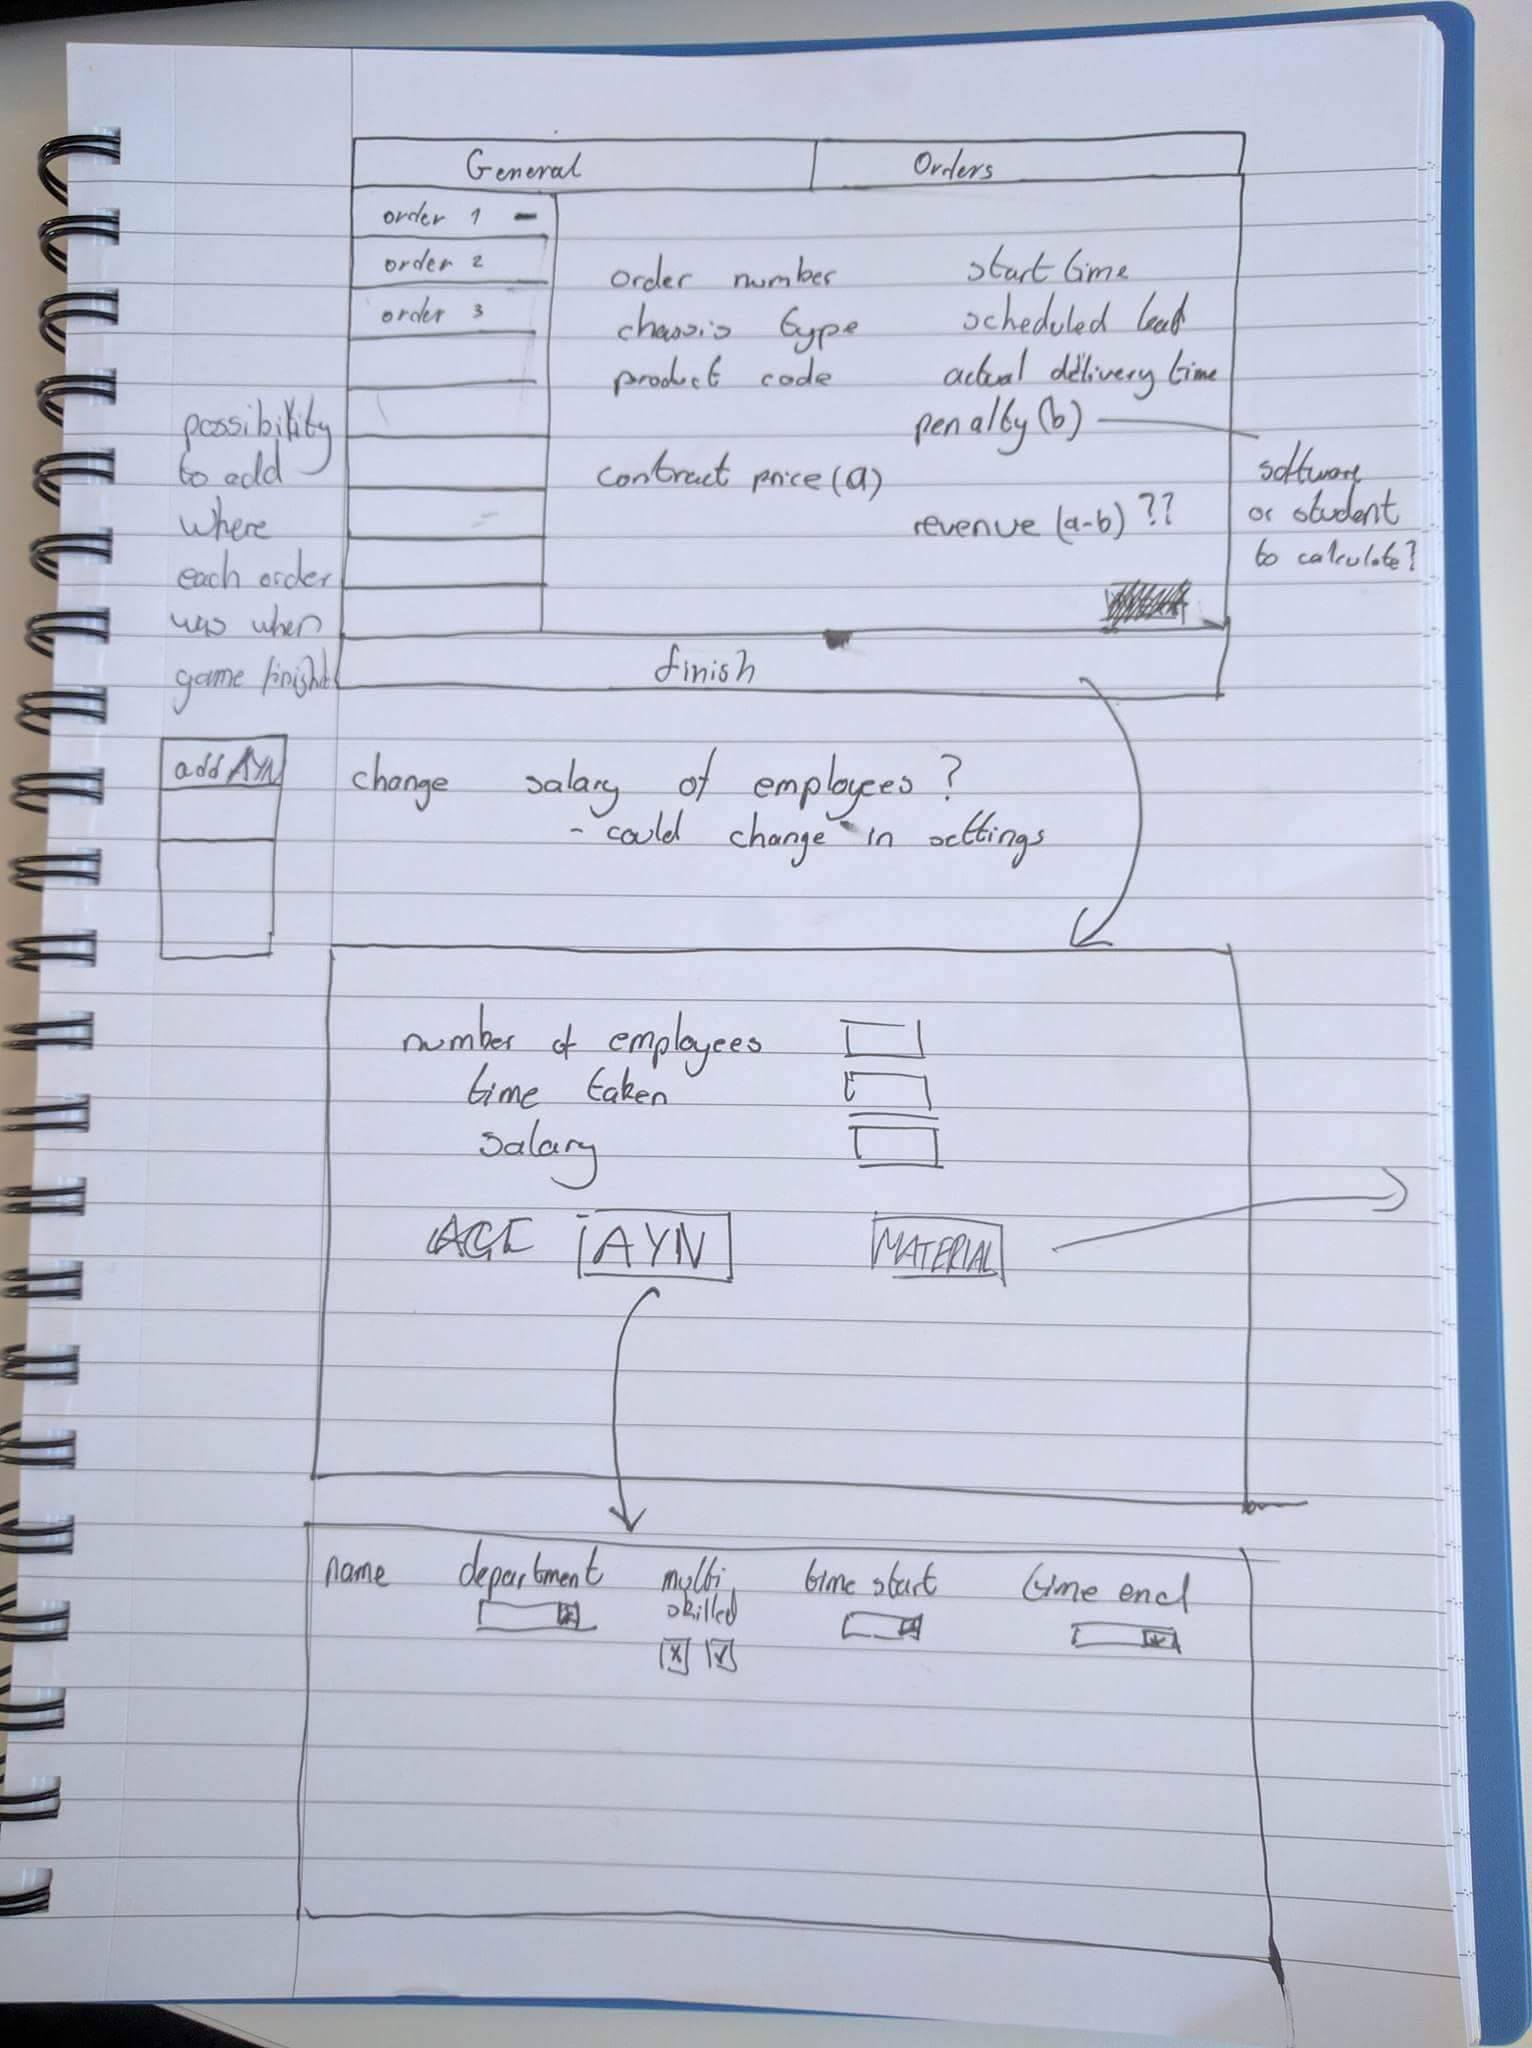 General Orders
order 1 -
order 2
order 3
order number start time
chassis type scheduled
product code actual delivery time
penalty (b)
contract price (a)
revenue (a-b) ??
software
or student
to calculate?
possibility
to add
where
each order
was when
game finish
finish
add AYN
change salary of employees?
- could change in settings
number of employees
time taken
salary
AYN MATERIAL
name department multi skilled time start time end